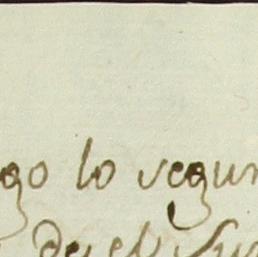 go lo segun
de el Su